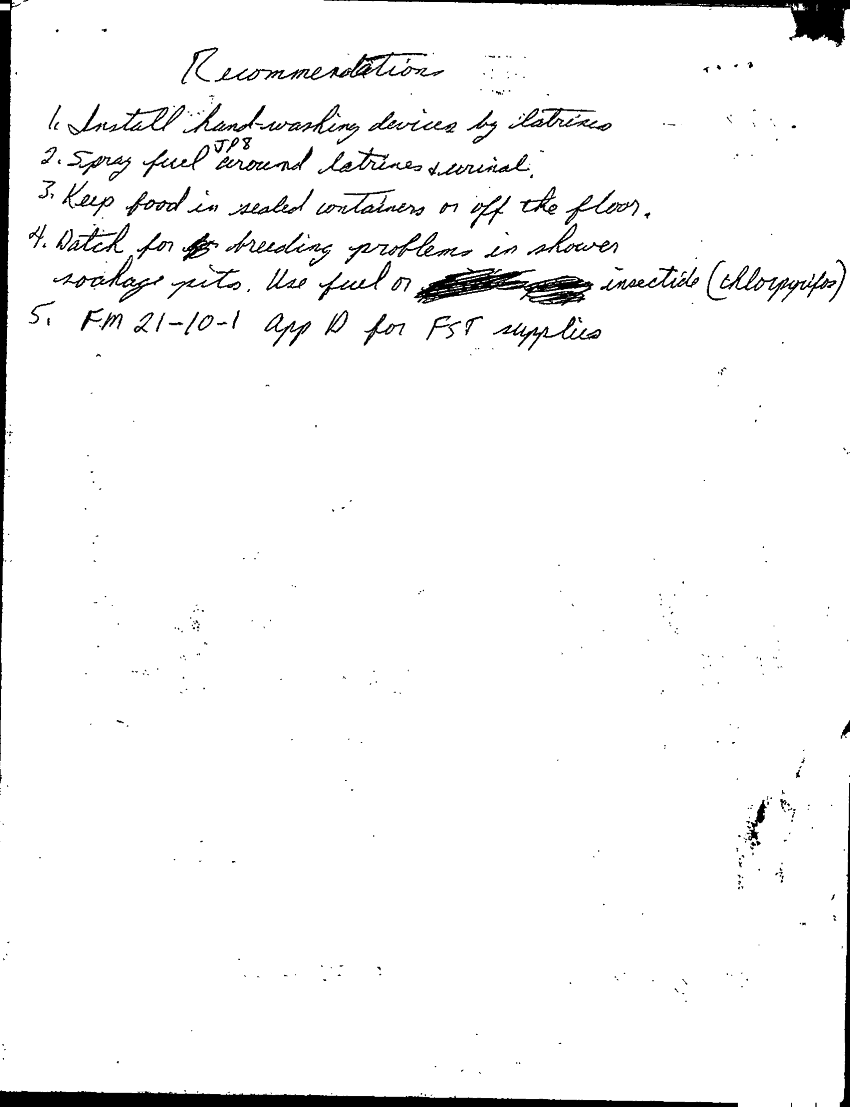 Recommendations
1. Install hand-washing devices by latrines
2. Spray fuel JP8 around latrines & urinal.
3. Keep food in sealed containers or off the floor.
4. Watch for breeding problems in shower
soakage pits. Use fuel or insecticide (chlorpyrifos)
5. FM 21-10-1 App D for FST supplies